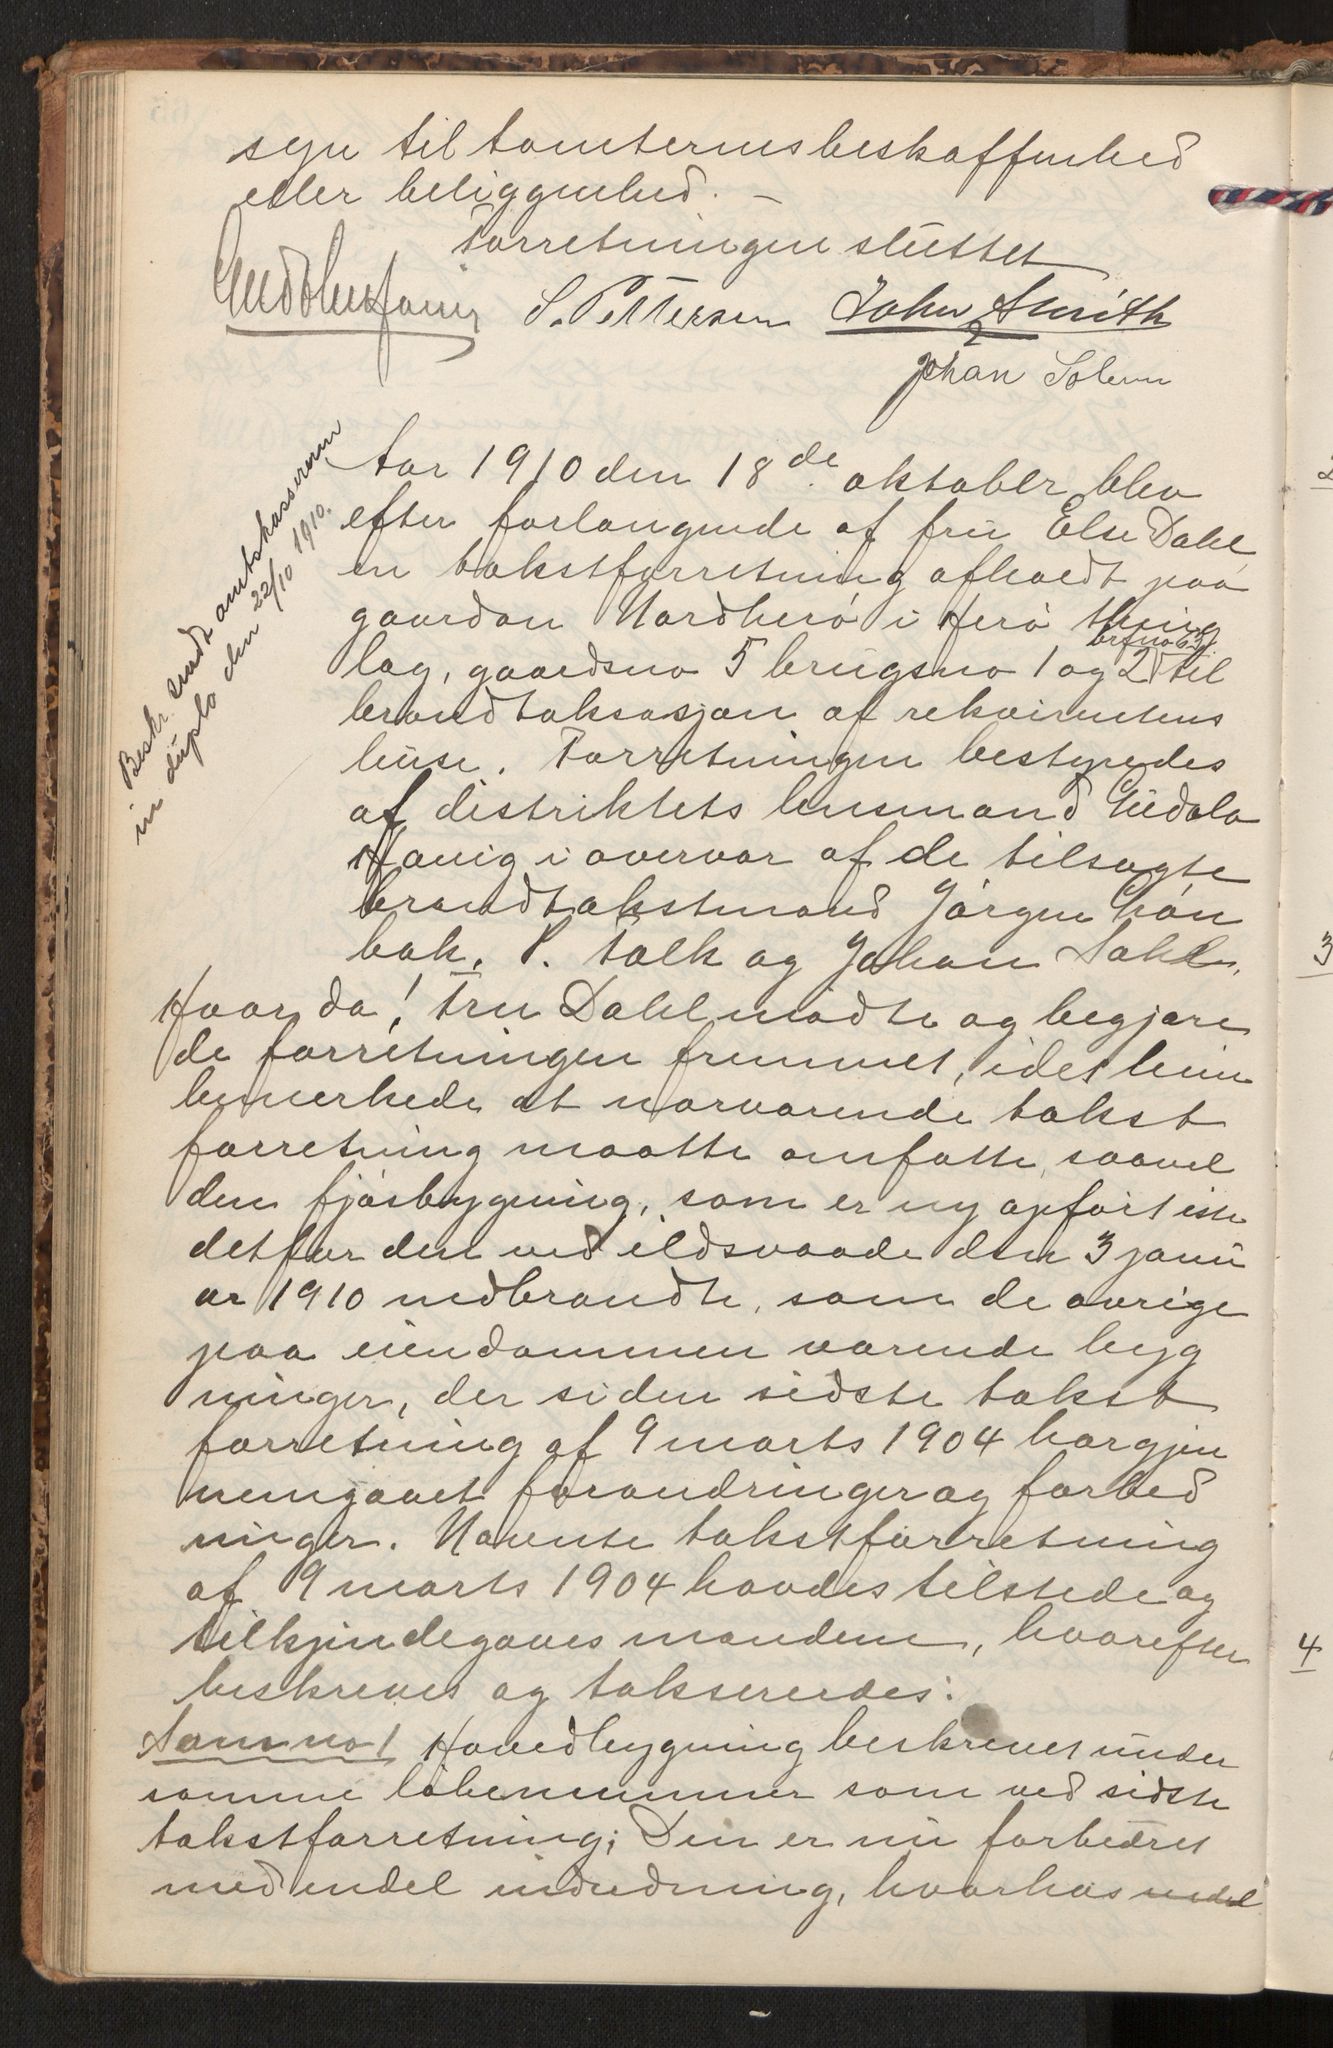 syn til tomternes beskaffenhed
eller beliggenhed. —
Forretningen sluttet
S. Pettersen John Smith
Johan Solem
Beskr. sendt amtskassereren
in duplo den 22/10 1910.
Aar 1910 den 18de oktober blev
efter forlangende af fru Else Dahl
en takstforretning afholdt paa
gaarden Nordherö i Herö thing
brfno 63
lag, gaardsno 5 brugsno 1 og 2 til
brandtaksasjon af rekvirentens
huse. Forretningen bestyredes
af distriktets lensmand
Havig i overvær af de tilsagte
brandtakstmænd Jörgen Grön
bæk, P. Falk og Johan Dahl.
Hvor da! Fru Dahl mödte og begjære
de forretningen fremmet, idet hun
bemerkede at nærværende takst
forretning maatte omfatte, saavel
den fjösbygning, som er ny opfört iste
detfor den ved ildsvaade den 3 janu
ar 1910 nedbrændte, som de övrige
paa eiendommen værende byg
ninger, der siden sidste takst
forretning af 9 marts 1904 har gjen
nemgaaet forandringer og forbed
ninger. Nævnte takstforretning
af 9 marts 1904 havdes tilstede og
tilkjendegaves mændene, hvorefter
beskreves og takseredes:
Som no 1 Hovedbygning beskrevet under
samme löbenummer som ved sidste
takstforretning; Den er nu forbedret
med endel indredning, hvorhos endel
2
3
4